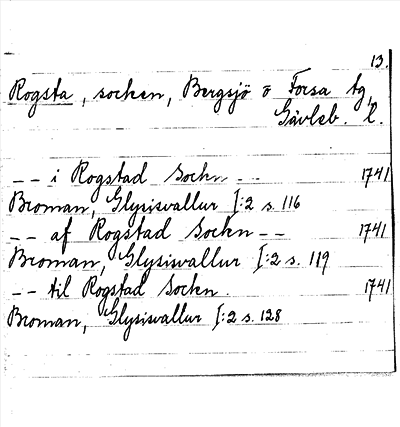 13.
Rogsta, socken, Bergsjö o Forsa tg
Gävleb. l.
-- i Rogstad Sockn -- 1741
Broman, Glysisvallur I:2 s. 116
-- af Rogstad Sockn -- 1741
Broman, Glysisvallur I:2 s. 119
-- til Rogstad Sockn. 1741
Broman, Glysisvallur I:2 s. 128